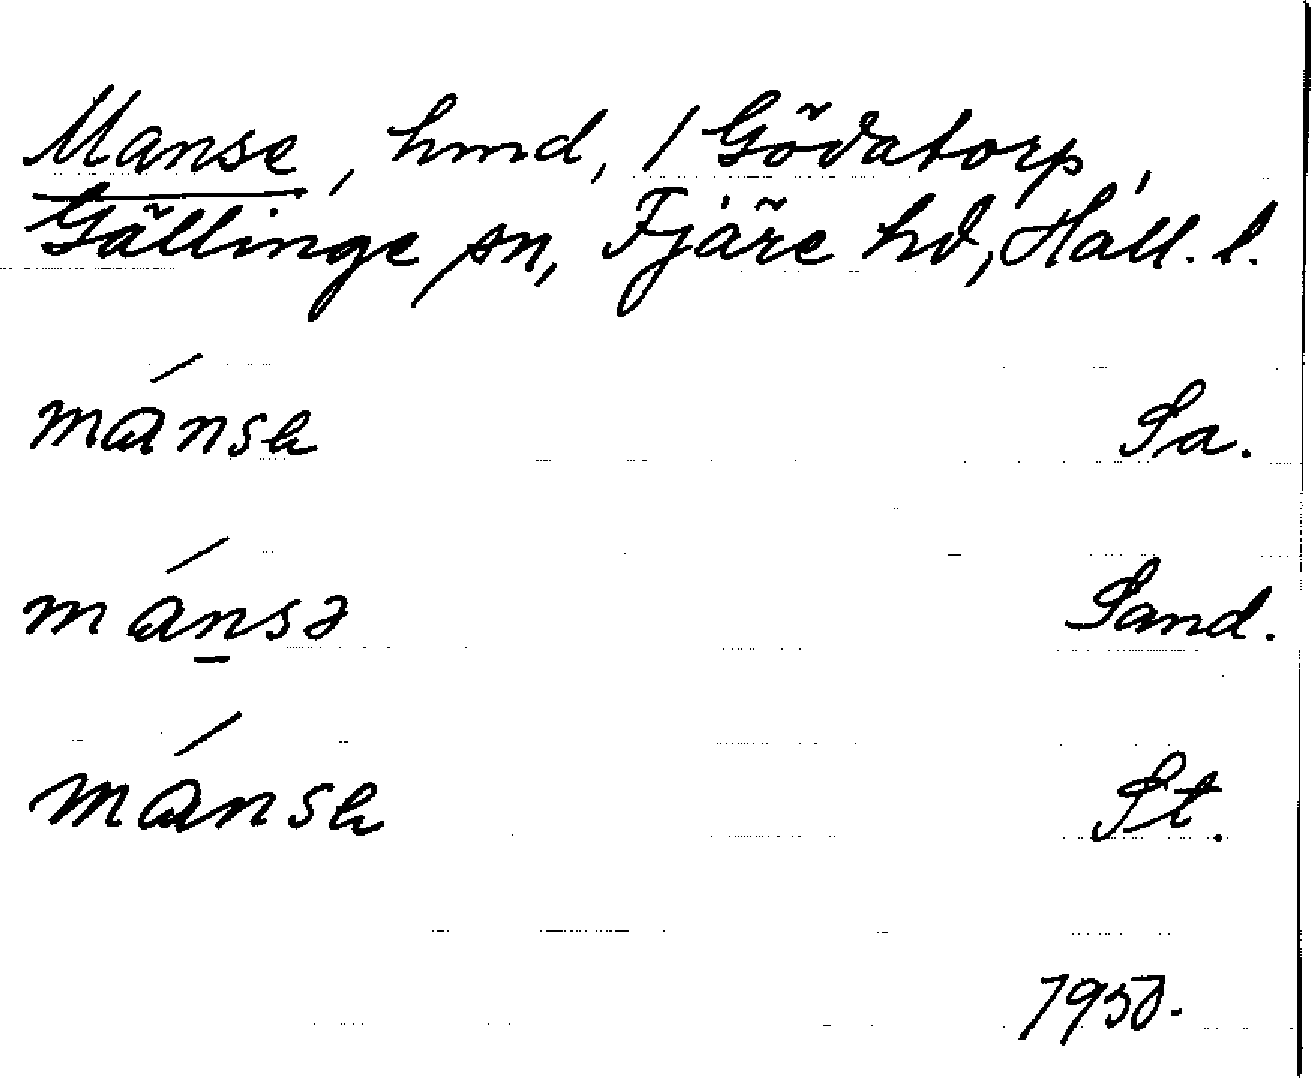 Manse, hmd, 1 Gödatorp,
Gällinge sn, Fjäre hd, Hall. l.
mánsɐ Sa.
mán̠sə Sand.
mánsɐ St.
1950.